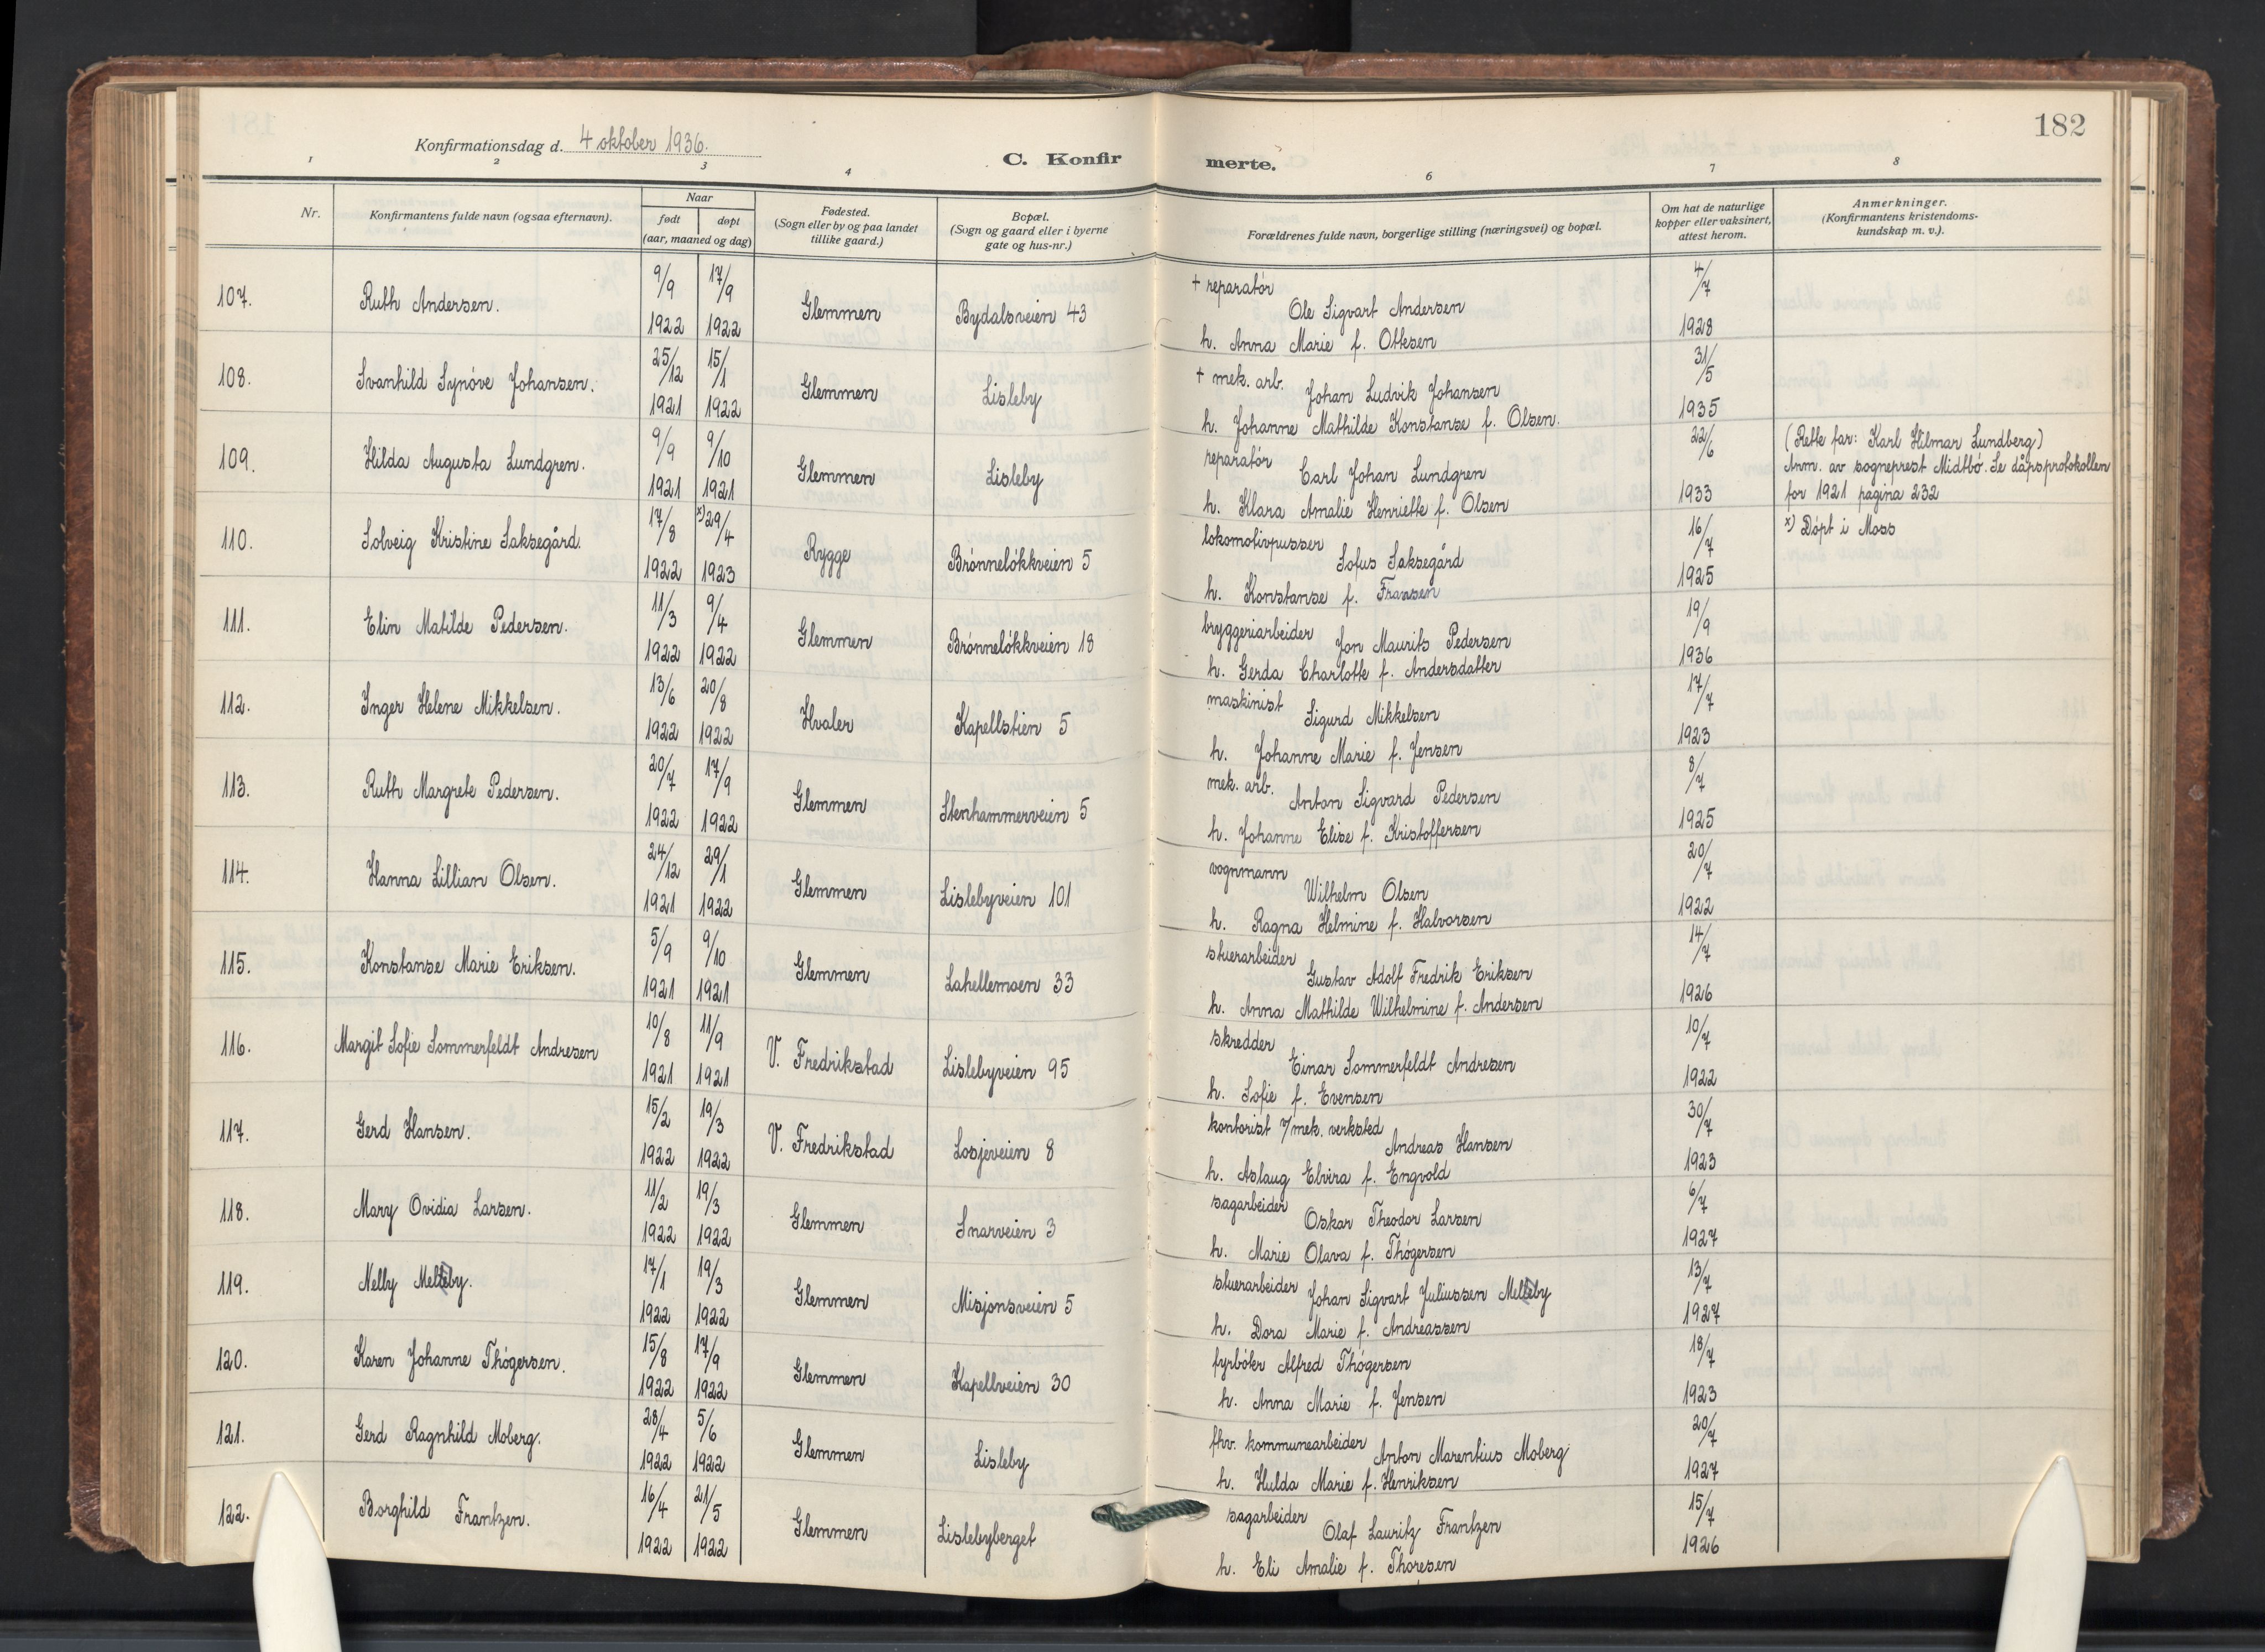 182
Konfirmationsdag d. 4 oktober 1936.
C. Konfirmerte.
1 2 3 4 6 7 8
Nr.
Konfirmantens fulde navn (ogsaa efternavn).
Naar
født døpt
(aar, maaned og dag)
Fødested.
(Sogn eller by og paa landet
tillike gaard.)
Bopæl.
(Sogn og gaard eller i byerne
gate og hus-nr.)
Forældrenes fulde navn, borgerlige stilling (næringsvei) og bopæl.
Om hat de naturlige
kopper eller vaksinert,
attest herom.
Anmerkninger.
(Konfirmantens kristendoms-
kundskap m. v.).
107. Ruth Andersen. 9/9 1922 17/9 1922 Glemmen Bydalsveien 43
+ reparatór
Ole Sigvart Andersen
h. Anna Marie f. Ottesen
4/7 1928
108. Svanhild Synóve Johansen. 25/12 1921 15/1 1922 Glemmen Lisleby
+ mek. arb.
Johan Ludvik Johansen
h. Johanne Mathilde Konstanse f. Olsen.
31/5 1935
109. Hilda Augusta Lundgren. 9/9 1921 9/10 1921 Glemmen Lisleby
reparatór
Carl Johan Lundgren
h. Klara Amalie Henriette f. Olsen
22/6 1933
(Rette far: Karl Hilmar Lundberg)
Anm. av sogneprest Midtbó. Se dåpsprotokollen
for 1921 pagina 232
110. Solveig Kristine Saksegård. 17/8 1922 x) 29/4 1923 Rygge Brónnelókkveien 5
lokomotivpusser
Sofus Saksegård
h. Konstanse f. Fransen
16/7 1925
x) Dópt i Moss
111. Elin Matilde Pedersen. 11/3 1922 9/4 1922 Glemmen Brónnelókkveien 18
bryggeriarbeider
Jon Maurits Pedersen
h. Gerda Charlotte f. Andersdatter
19/9 1936
112. Inger Helene Mikkelsen. 13/6 1922 20/8 1922 Hvaler Kapellstien 5
maskinist
Sigurd Mikkelsen
h. Johanne Marie f. Jensen
17/7 1923
113. Ruth Margrete Pedersen. 20/7 1922 17/9 1922 Glemmen Stenhammerveien 5
mek. arb.
Anton Sigvard Pedersen
h. Johanne Elise f. Kristoffersen
8/7 1925
114. Hanna Lillian Olsen. 24/12 1921 29/1 1922 Glemmen Lislebyveien 101
vognmann
Wilhelm Olsen
h. Ragna Helmine f. Halvorsen
20/7 1922
115. Konstanse Marie Eriksen. 5/9 1921 9/10 1921 Glemmen Lahellemoen 33
stuerarbeider
Gustav Adolf Fredrik Eriksen
h. Anna Mathilde Wilhelmine f. Andersen
14/7 1926
116. Margit Sofie Sommerfeldt Andresen 10/8 1921 11/9 1921 V. Fredrikstad Lislebyveien 95
skredder
Einar Sommerfeldt Andresen
h. Sofie f. Evensen
10/7 1922
117. Gerd Hansen. 15/2 1922 19/3 1922 V. Fredrikstad Losjeveien 8
kontorist v/mek. verksted
Andreas Hansen
h. Aslaug Elvira f. Engvold
30/7 1923
118. Mary Ovidia Larsen. 11/2 1922 19/3 1922 Glemmen Snarveien 3
sagarbeider
Oskar Theodor Larsen
h. Marie Olava f. Thógersen
6/7 1927
119. Nelly 17/1 1922 19/3 1922 Glemmen Misjonsveien 5
stuerarbeider Johan Sigvart Juliussen
h. Dora Marie f. Andreassen
13/7 1927
120. Karen Johanne Thógersen. 15/8 1922 17/9 1922 Glemmen Kapellveien 30
fyrbóter Alfred Thógersen
h. Anna Marie f. Jensen
18/7 1923
121. Gerd Ragnhild Moberg. 28/4 1922 5/6 1922 Glemmen Lisleby
fhv. kommunearbeider
Anton Marentius Moberg
h. Hulda Marie f. Henriksen
20/7 1927
122. Borghild Frantzen. 16/4 1922 21/5 1922 Glemmen Lislebyberget
sagarbeider
Olaf Lauritz Frantzen
h. Eli Amalie f. Thoresen
15/7 1926